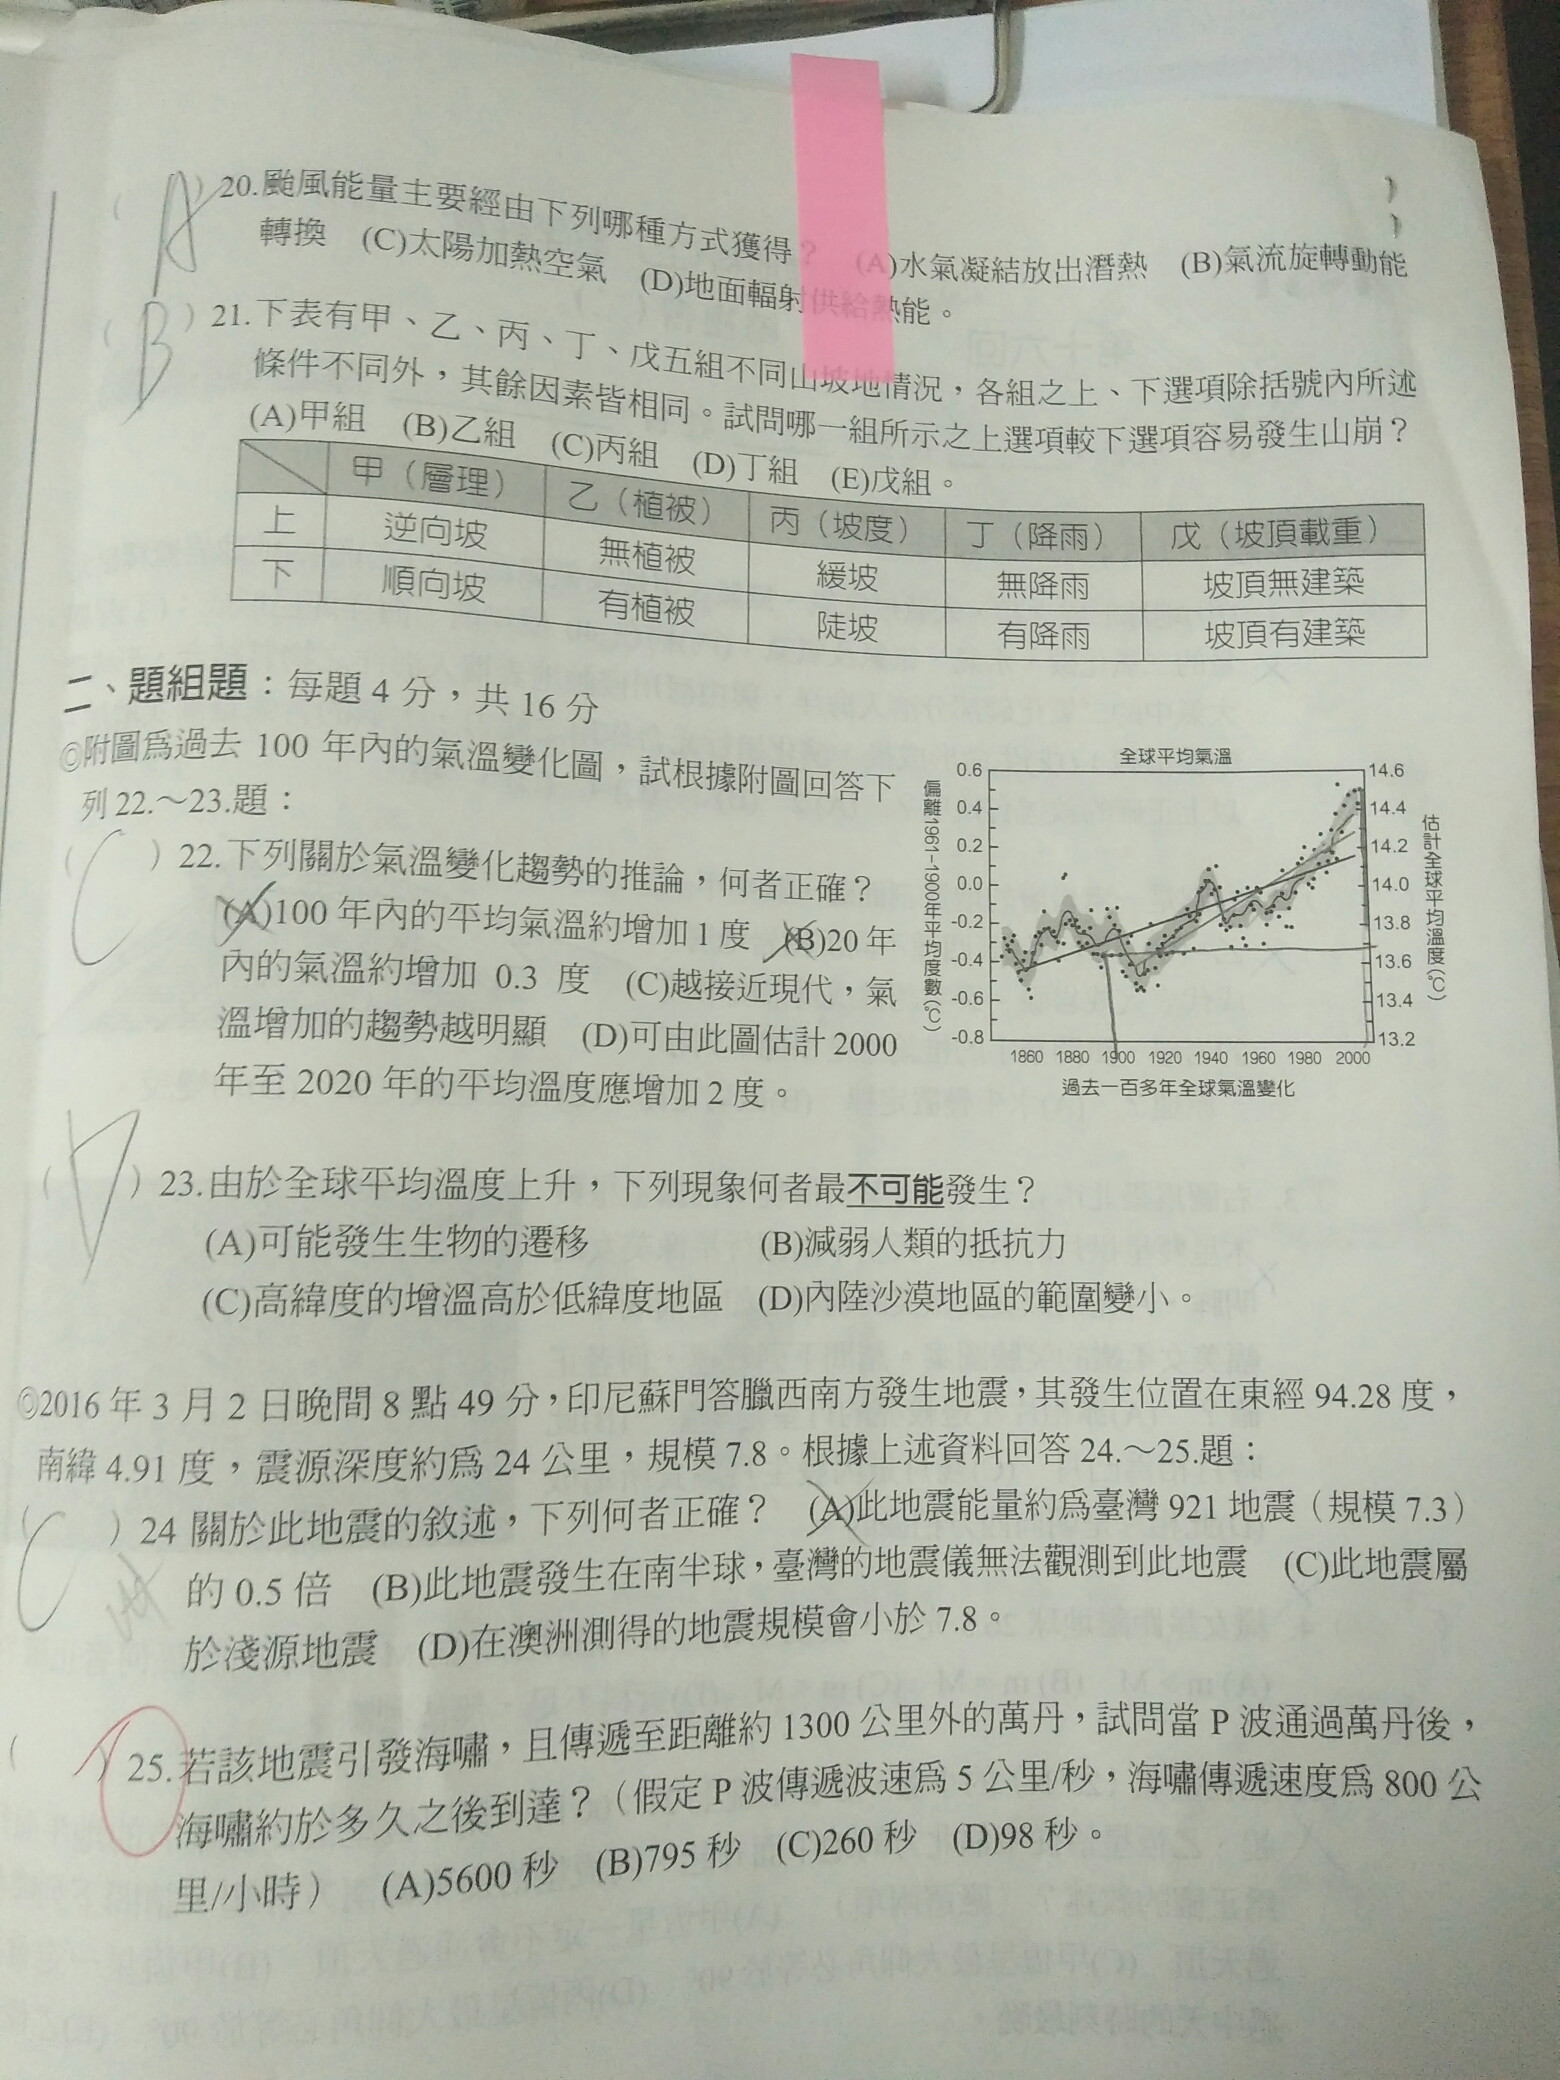 A
( ) 20.颱風能量主要經由下列哪種方式獲得? (A)水氣凝結放出潛熱 (B)氣流旋轉動能
轉換 (C)太陽加熱空氣 (D)地面輻射供給熱能。
B
( ) 21.下表有甲、乙、丙、丁、戊五組不同山坡地情況,各組之上、下選項除括號內所述
條件不同外,其餘因素皆相同。試問哪一組所示之上選項較下選項容易發生山崩?
(A)甲組 (B)乙組 (C)丙組 (D)丁組 (E)戊組。
甲(層理) 乙(植被) 丙(坡度) 丁(降雨) 戊(坡頂載重)
上 逆向坡 無植被 緩坡 無降雨 坡頂無建築
下 順向坡 有植被 陡坡 有降雨 坡頂有建築
二、題組題:每題 4 分,共 16 分
◎附圖為過去 100 年內的氣溫變化圖,試根據附圖回答下
列 22.~23.題:
C
( ) 22.下列關於氣溫變化趨勢的推論,何者正確?
(A)100 年內的平均氣溫約增加 1 度 (B)20 年
內的氣溫約增加 0.3 度 (C)越接近現代,氣
溫增加的趨勢越明顯 (D)可由此圖估計 2000
年至 2020 年的平均溫度應增加 2 度。
全球平均氣溫
偏離1961-1900年平均度數(℃)
0.6
0.4
0.2
0.0
-0.2
-0.4
-0.6
-0.8
14.6
14.4
14.2
14.0
13.8
13.6
13.4
13.2
估計全球平均溫度(℃)
1860 1880 1900 1920 1940 1960 1980 2000
過去一百多年全球氣溫變化
D
( ) 23.由於全球平均溫度上升,下列現象何者最不可能發生?
(A)可能發生生物的遷移 (B)減弱人類的抵抗力
(C)高緯度的增溫高於低緯度地區 (D)內陸沙漠地區的範圍變小。
◎2016 年 3 月 2 日晚間 8 點 49 分,印尼蘇門答臘西南方發生地震,其發生位置在東經 94.28 度,
南緯 4.91 度,震源深度約為 24 公里,規模 7.8。根據上述資料回答 24.~25.題:
C
( ) 24 關於此地震的敘述,下列何者正確? (A)此地震能量約為臺灣 921 地震(規模 7.3)
的 0.5 倍 (B)此地震發生在南半球,臺灣的地震儀無法觀測到此地震 (C)此地震屬
於淺源地震 (D)在澳洲測得的地震規模會小於 7.8。
( ) 25.若該地震引發海嘯,且傳遞至距離約 1300 公里外的萬丹,試問當 P 波通過萬丹後,
海嘯約於多久之後到達?(假定 P 波傳遞波速為 5 公里/秒,海嘯傳遞速度為 800 公
里/小時) (A)5600 秒 (B)795 秒 (C)260 秒 (D)98 秒。